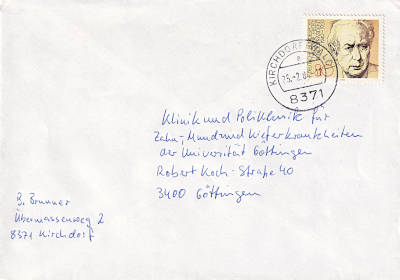 KIRCHDORF
8371
80
Klinik und Poliklinik für
Zahn-, Mund und Kieferkrankheiten
der Universität Göttingen
Robert Koch-Straße 40
3400 Göttingen
B. Brunner
Übermassenweg 2
8371 Kirchdorf